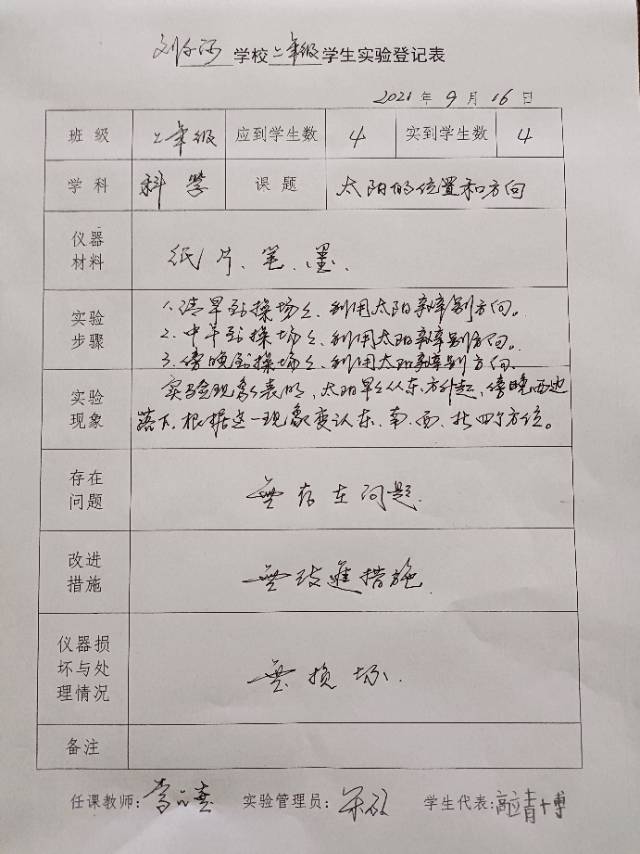 学校二年级学生实验登记表
2021年9月16日
班级 二年级 应到学生数 4 实到学生数 4
学科 科学 课题 太阳的位置和方向
仪器
材料
纸片、笔、墨、
实验
步骤
1.清早到操场上、利用太阳来辨别方向。
2.中午到操场上、利用太阳来辨别方向。
3.傍晚到操场上、利用太阳来辨别方向、
实验
现象
实验现象表明，太阳早上从东方升起、傍晚西边
落下、根据这一现象变认东、南、西、北四个方位。
存在
问题
無存在问题.
改进
措施
無改進措施.
仪器损
坏与处
理情况
無损坏.
备注
任课教师: 实验管理员: 学生代表: